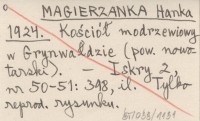 MAGIERZANKA Hanka
1924. Kościół modrzewiowy
w Grynwałdzie (pow. nowo-
tarski). — Iskry 2
nr 50-51: 348, il. Tylko
reprod. rysunku.